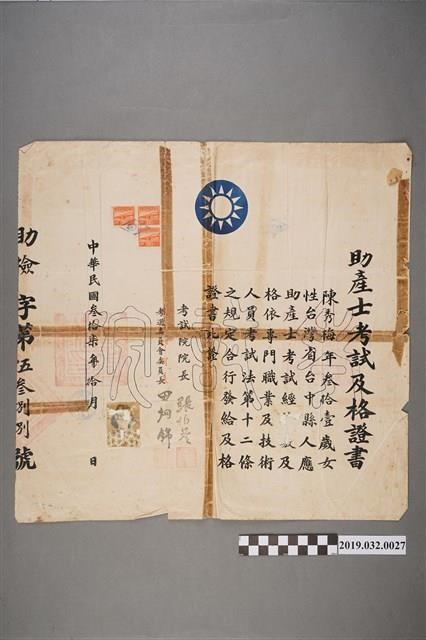 助產士考試及格證書
陳秀梅年叁拾壹歲女
性台灣省台中縣人應
助產士考試經 及
格依專門職業及技術
人員考試法第十二條
之規定合行發給及格
證書此證
考試院院長
張伯苓
考選委員會委員長
田炯錦
中華民國叁拾柒年拾月 日
助檢字第伍叁捌捌號
2019.032.0027